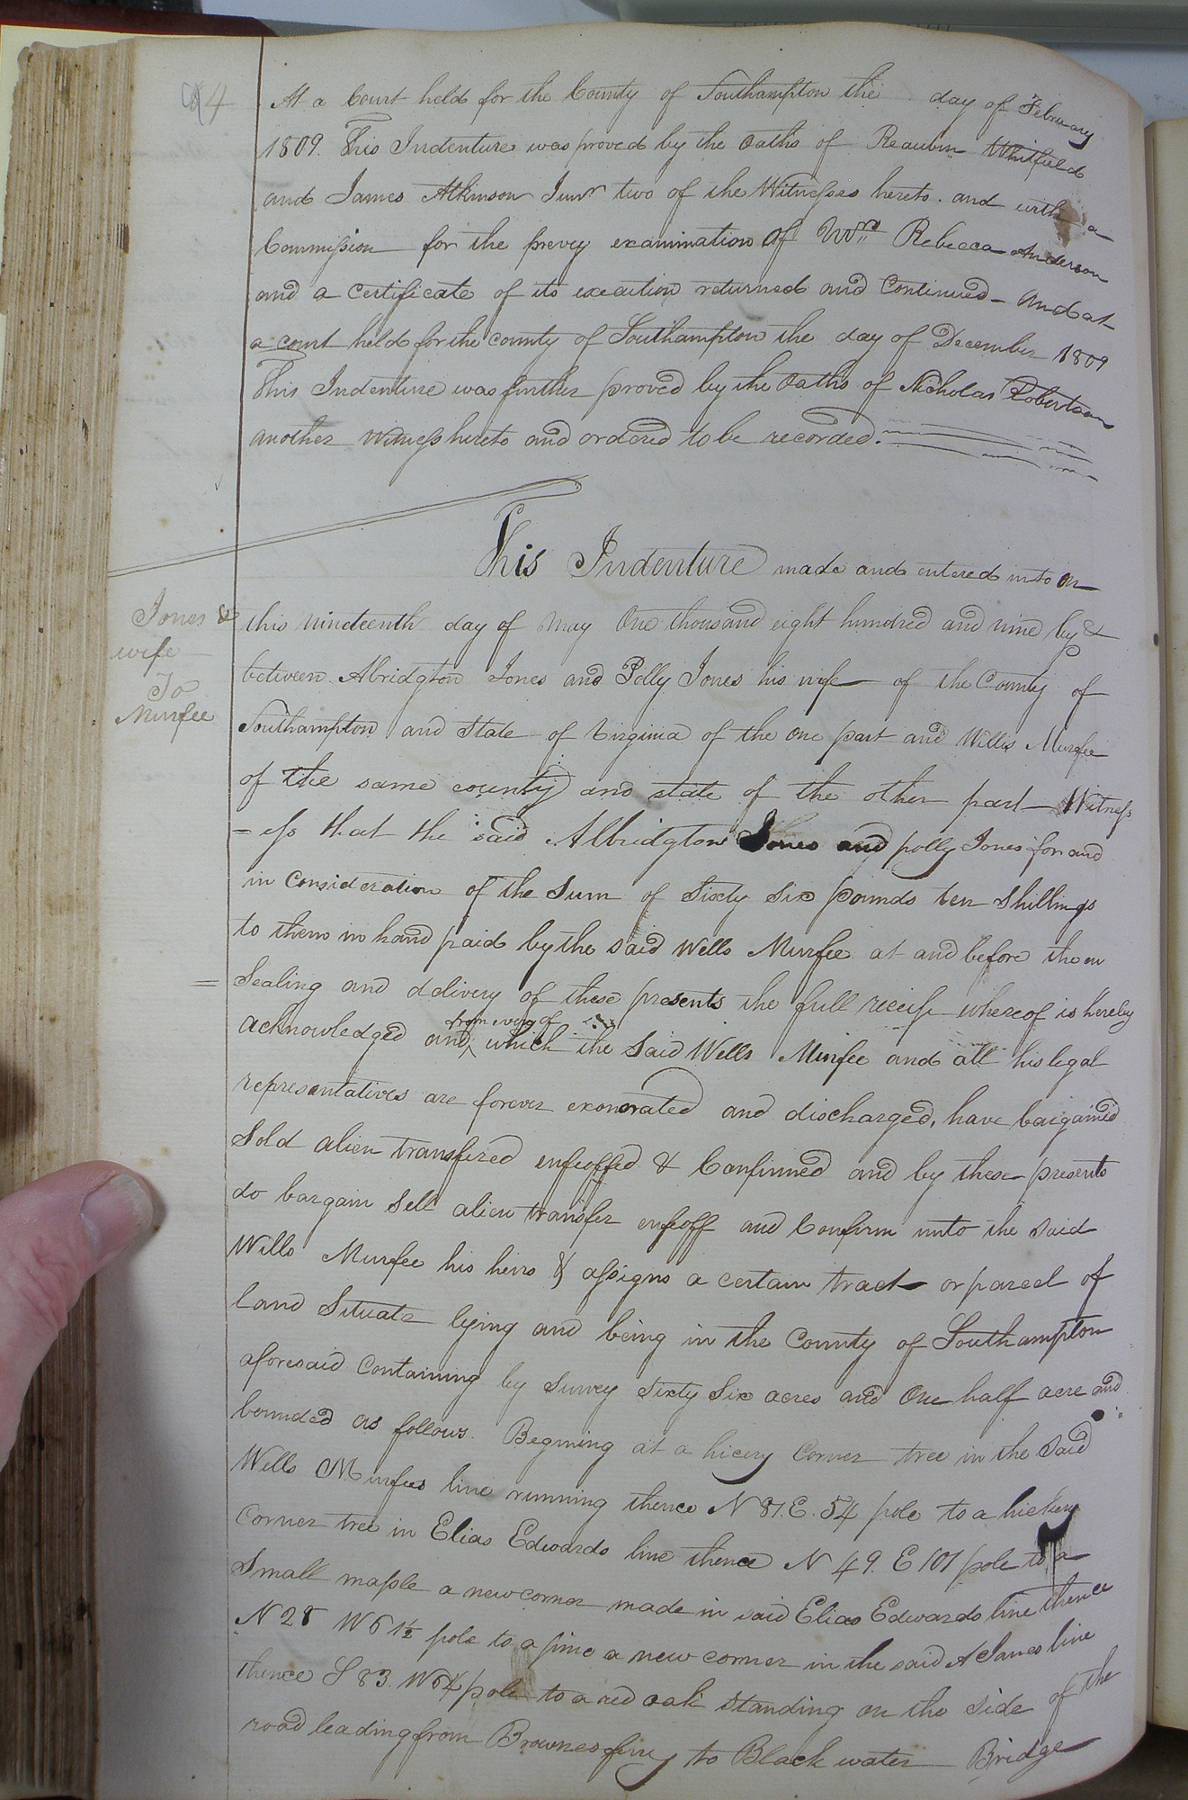 94
At a Court held for the County of Southampton the day of February
1809. This Indenture was proved by the oaths of Reaubin Whitfield
and James Atkinson Junr two of the Witnesses hereto. and with a
Commission for the prevey examination of Wm Rebecca Anderson
and a certificate of its execution returned and Continued - And at
a court held for the county of Southampton the day of December 1809
This Indenture was further proved by the oaths of Nicholas Robertson
another witness hereto and ordered to be recorded.
This Indenture made and entered into on
Jones &
wife
To
Murfee
this nineteenth day of May One thousand eight hundred and nine by &
between Abridgton Jones and Polly Jones his wife of the County of
Southampton and State of Virginia of the one part and Willis Murfee
of the same county and state of the other part Witness
=ess that the said Albridgton Jones and polly Jones for and
in Consideration of the Sum of Sixty Six pounds ten Shillings
to them in hand paid by the said Wells Murfee at and before the en
= Sealing and delivery of these presents the full receip whereof is hereby
from every of
acknowledged and ^ which the Said Wells Murfee and all his legal
representatives are forever exonorated and discharged, have bargained
Sold alien transfered enfeoffed & Confirmed and by these presents
do bargain Sell alien transfer enfeoff and Confirm unto the said
Wells Murfee his heirs & assigns a certain tract or parcel of
land Situate lying and being in the County of Southampton
aforesaid Containing by Survey Sixty Six acres and One half acre and
bounded as follows. Begining at a hicery Corner tree in the said
Wells Murfees line running thence N 81. E. 54 pole to a hickery
Corner tree in Elias Edwards line thence N 49. E 101 pole to a
Small maple a new corner made in said Elias Edwards line thence
N 28 W 6 1/2 pole to a pine a new corner in the said A Jones line
thence S 83. W 64 pole to a red oak standing on the side of the
road leading from Brownes ferry to Black water Bridge